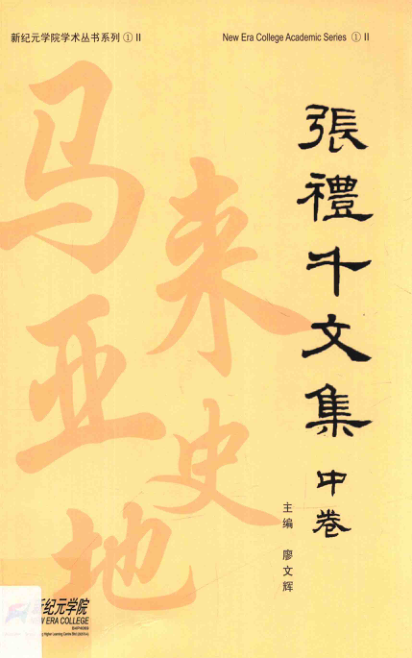 新纪元学院学术丛书系列①II
New Era College Academic Series ① II
張禮千文集
中卷
主编 廖文辉
马来亚史地
新纪元学院
NEW ERA COLLEGE